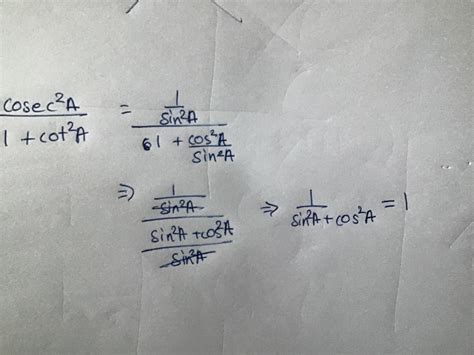 cosec²A / 1 + cot²A = 1/sin²A / 1 + cos²A/sin²A
⇒ 1/sin²A / sin²A + cos²A/sin²A ⇒ 1/sin²A + cos²A = 1